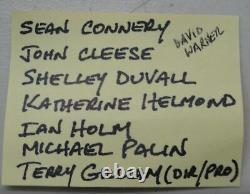 SEAN CONNERY
DAVID
WARNER
JOHN CLEESE
SHELLEY DUVALL
KATHERINE HELMOND
IAN HOLM
MICHAEL PALIN
TERRY GILLIAM (DIR/PRO)